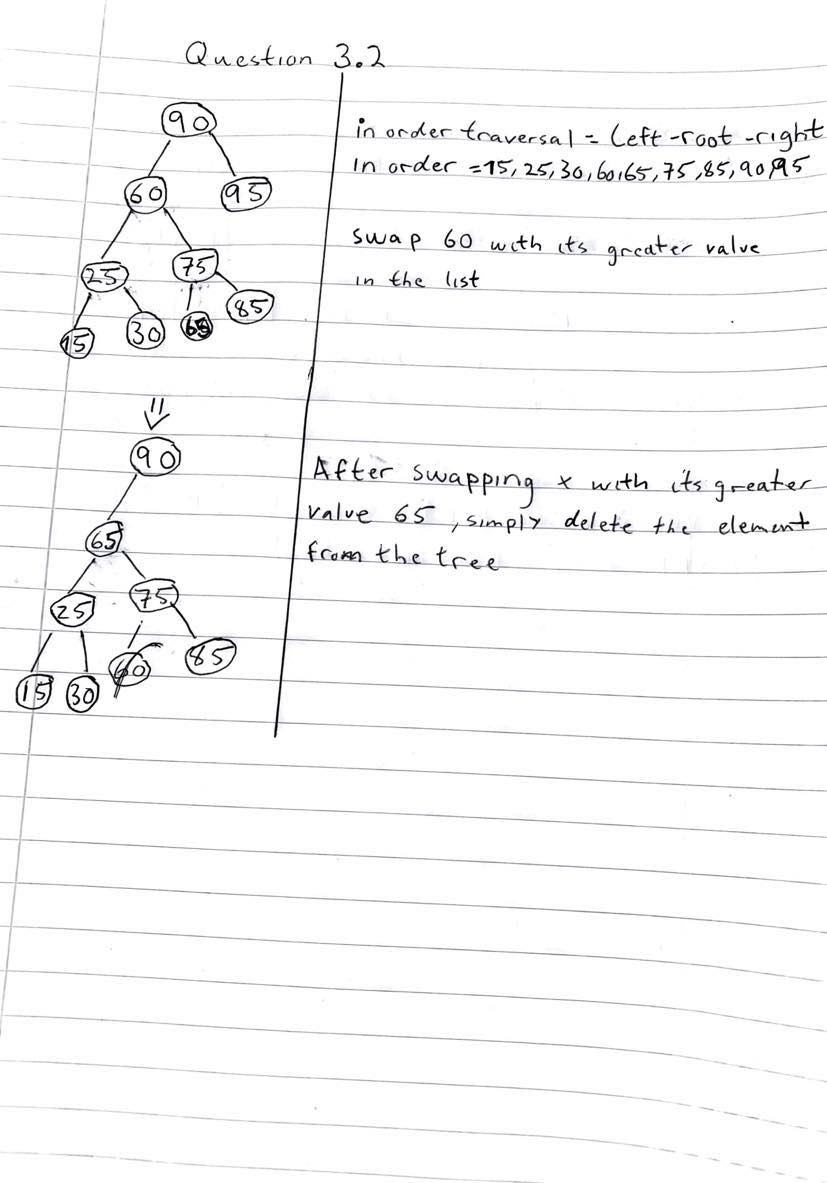 Question 3.2
90
60 95
25 75
15 30 65 85
in order traversal = Left-root-right
In order = 15, 25, 30, 60, 65, 75, 85, 90, 95
swap 60 with its greater value
in the list
90
65
25 75
15 30 60 85
After swapping x with its greater
value 65, simply delete the element
from the tree